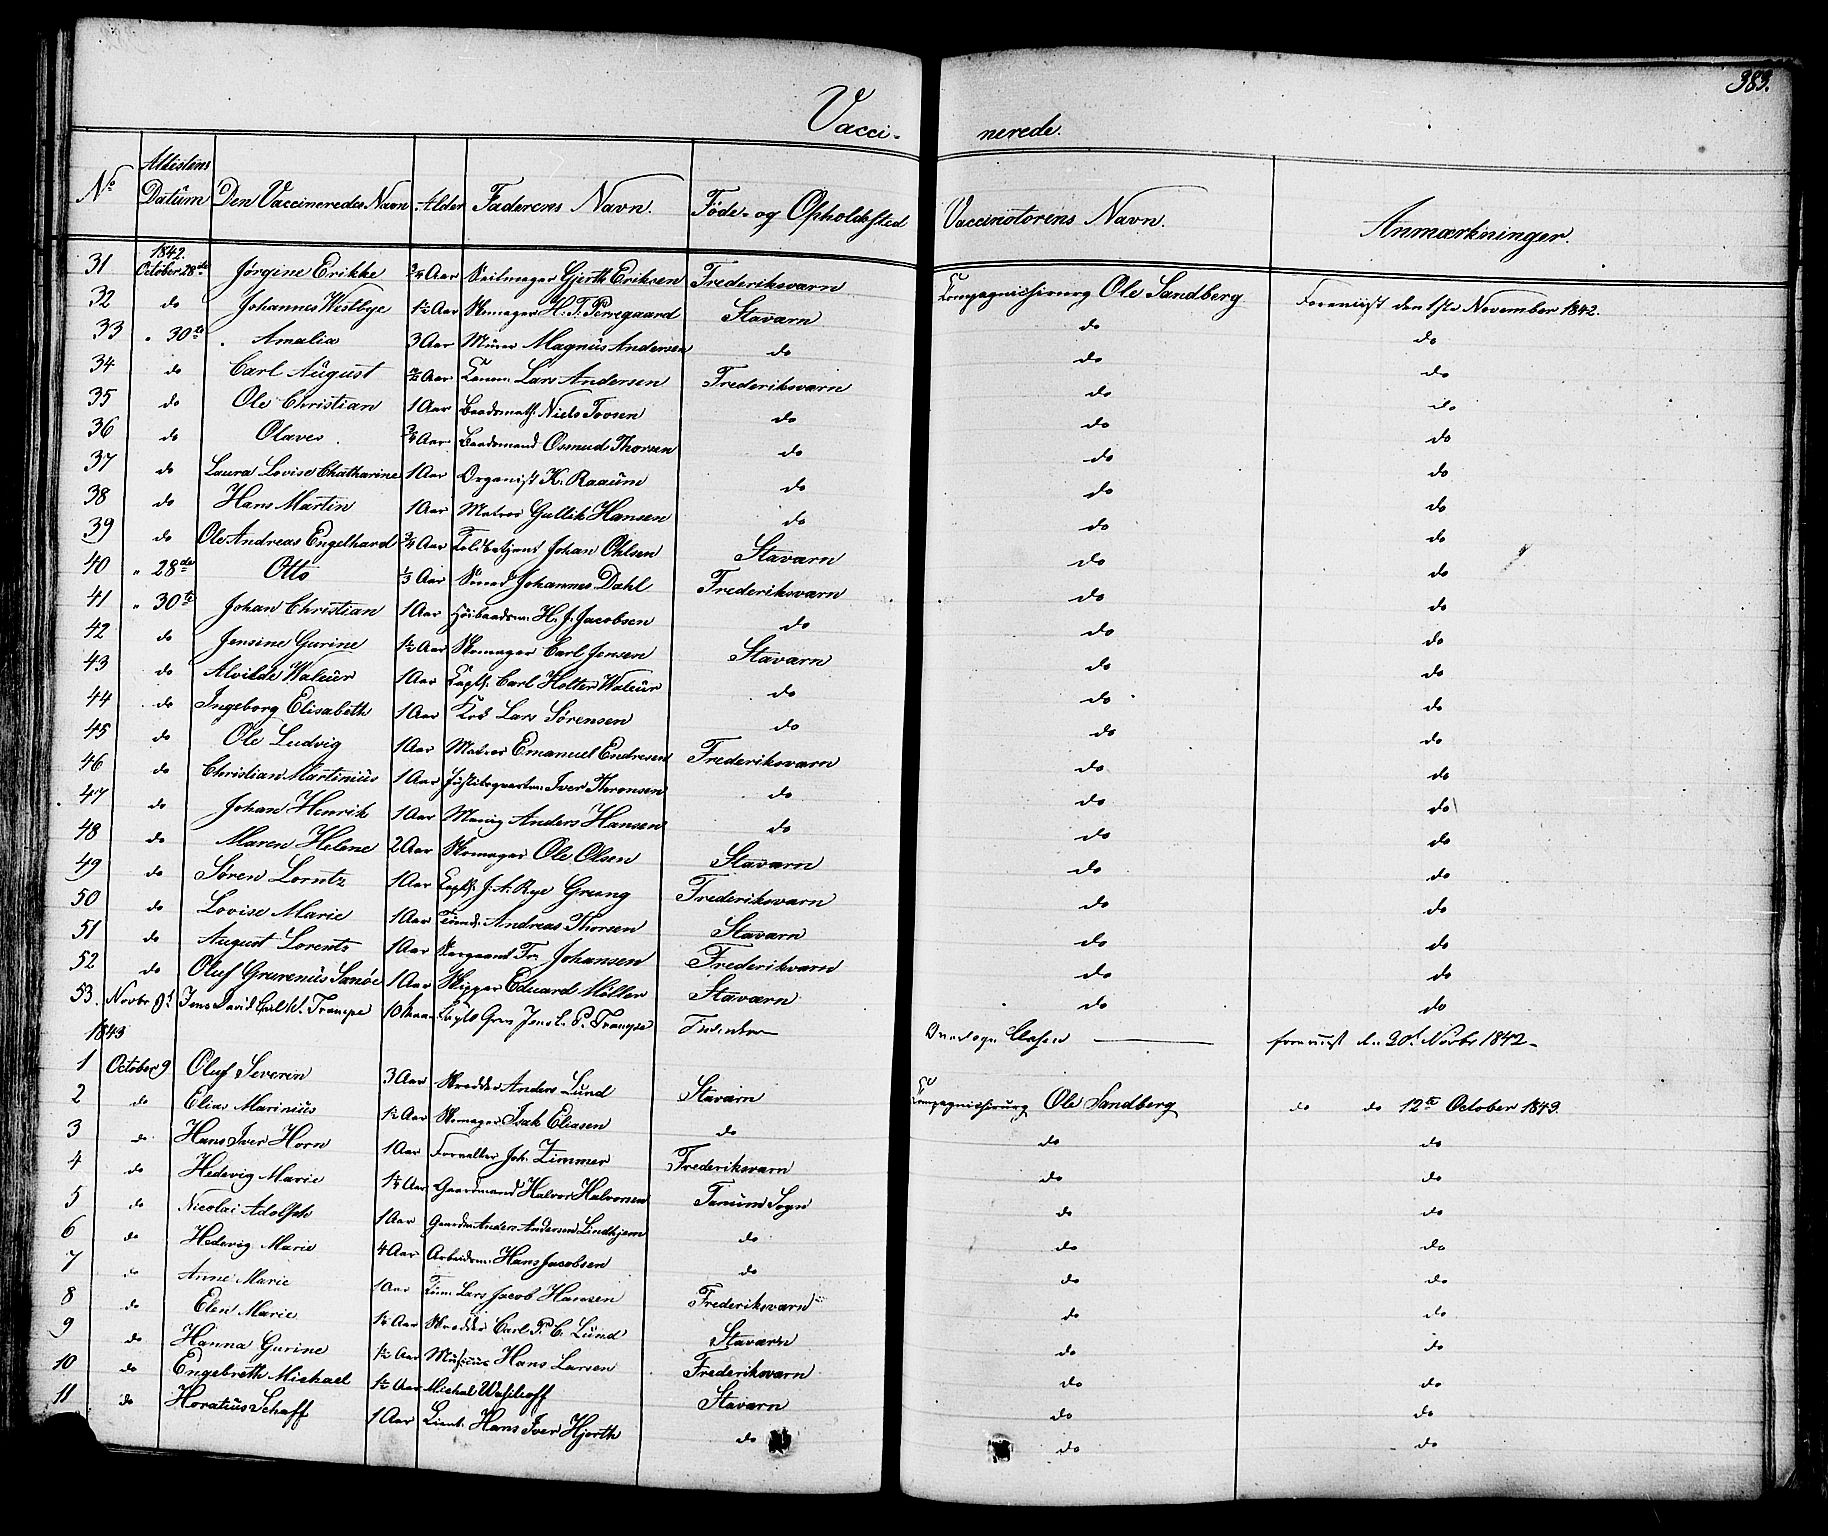 383.
Vacci- nerede.
No Attestens Datum Den Vaccineredes Navn Alder Faderens Navn. Føde- og Opholdssted Vaccinatorens Navn. Anmærkninger.
1842.
31 October 28de Jørgine Erikke 3/4 Aar Seilmager Gjerth Eriksen Frederiksværn Compagniechirurg Ole Sandberg Foreviist den 1ste November 1842.
32 do Johannes Westbye 1½ Aar Skomager H. T. Perregaard Staværn do do
33 " 30te Amalia 3 Aar Murer Magnus Andersen do do do
34 do Carl August Aar Lars Andersen Frederiksværn do do
35 do Ole Christian 1 Aar Baadsmath. Niels Tovsen do do do
36 do Olaves 3/4 Aar Baadsmand Osmud Thorsen do do do
37 do Laura Lovise Chatharine 1 Aar Organist K. Raaum do do do
38 do Hans Martin 1 Aar Matros Gullik Hansen do do do
39 do Ole Andreas Engelhard 3/4 Aar Toldbetjent Johan Ohlsen Staværn do do
40 " 28de Otto 1/3 Aar Smed Johannes Dahl Frederiksværn do do
41 " 30te Johan Christian 1 Aar Høibaadsm. H. J. Jacobsen do do do
42 do Jensine Gurine 1½ Aar Skomager Carl Jensen Staværn do do
43 do Alvilde Waleur 1 Aar Capt. Carl Holter Waleur do do do
44 do Ingeborg Elisabeth 1 Aar Lars Sørensen do do do
45 do Ole Ludvig 1 Aar Matros Emanuel Endresen Frederiksværn do do
46 do Christian Martinius 1 Aar Iver Thronsen do do do
47 do Johan Henrik 1 Aar Menig Anders Hansen do do do
48 do Maren Helene 2 Aar Skomager Ole Olsen Staværn do do
49 do Søren Lorntz 1 Aar Capt. J. A. Rye Greeng Frederiksværn do do
50 do Lovise Marie 1 Aar Tømd. Andreas Thorsen Staværn do do
51 do August Lorentz 1 Aar Sergeant Fr. Johansen Frederikværn do do
52 do Oluf Gruvenius Sanøe 1 Aar Skipper Eduard Møller Staværn do do
53. Novbr 9d Jens David Carl W. Trampe 10 Maan. Capt. Grev Jens C. P. Trampe Overlæge Clasen foreviist den 20d Novbr 1842
1843
1 October 9 Oluf Severin 3 Aar Skredder Anders Lund Staværn Compagniechirurg Ole Sandberg do do 12te October 1843.
2 do Elias Marinius 1½ Aar Skomager Isak Eliasen do do do
3 do Hans Iver Horn 1 Aar Forvalter Joh. Zimmer Frederiksværn do do
4 do Hedevig Marie 1½ Aar Gaardmand Halvor Halvorsen Tanum Sogn do do
5 do Nicolai Adolph 1 Aar Gaardm Anders Andersen Lindhjem do do do
6 do Hedevig Marie 4 Aar Arbeidsm. Hans Jacobsen do do do
7 do Anne Marie 1 Aar Tøm. Lars Jacob Hansen Frederiksværn do do
8 do Elen Marie 1½ Aar Skredder Carl P. C. Lund Staværn do do
9 do Hanna Gurine 1½ Aar Musicus Hans Larsen Frederiksværn do do
10 do Engebreth Michael 1½ Aar Michal Wahlhoff Staværn do do
11 do Horatius Schaff 1 Aar Lieut. Hans Iver Hjorth do do do